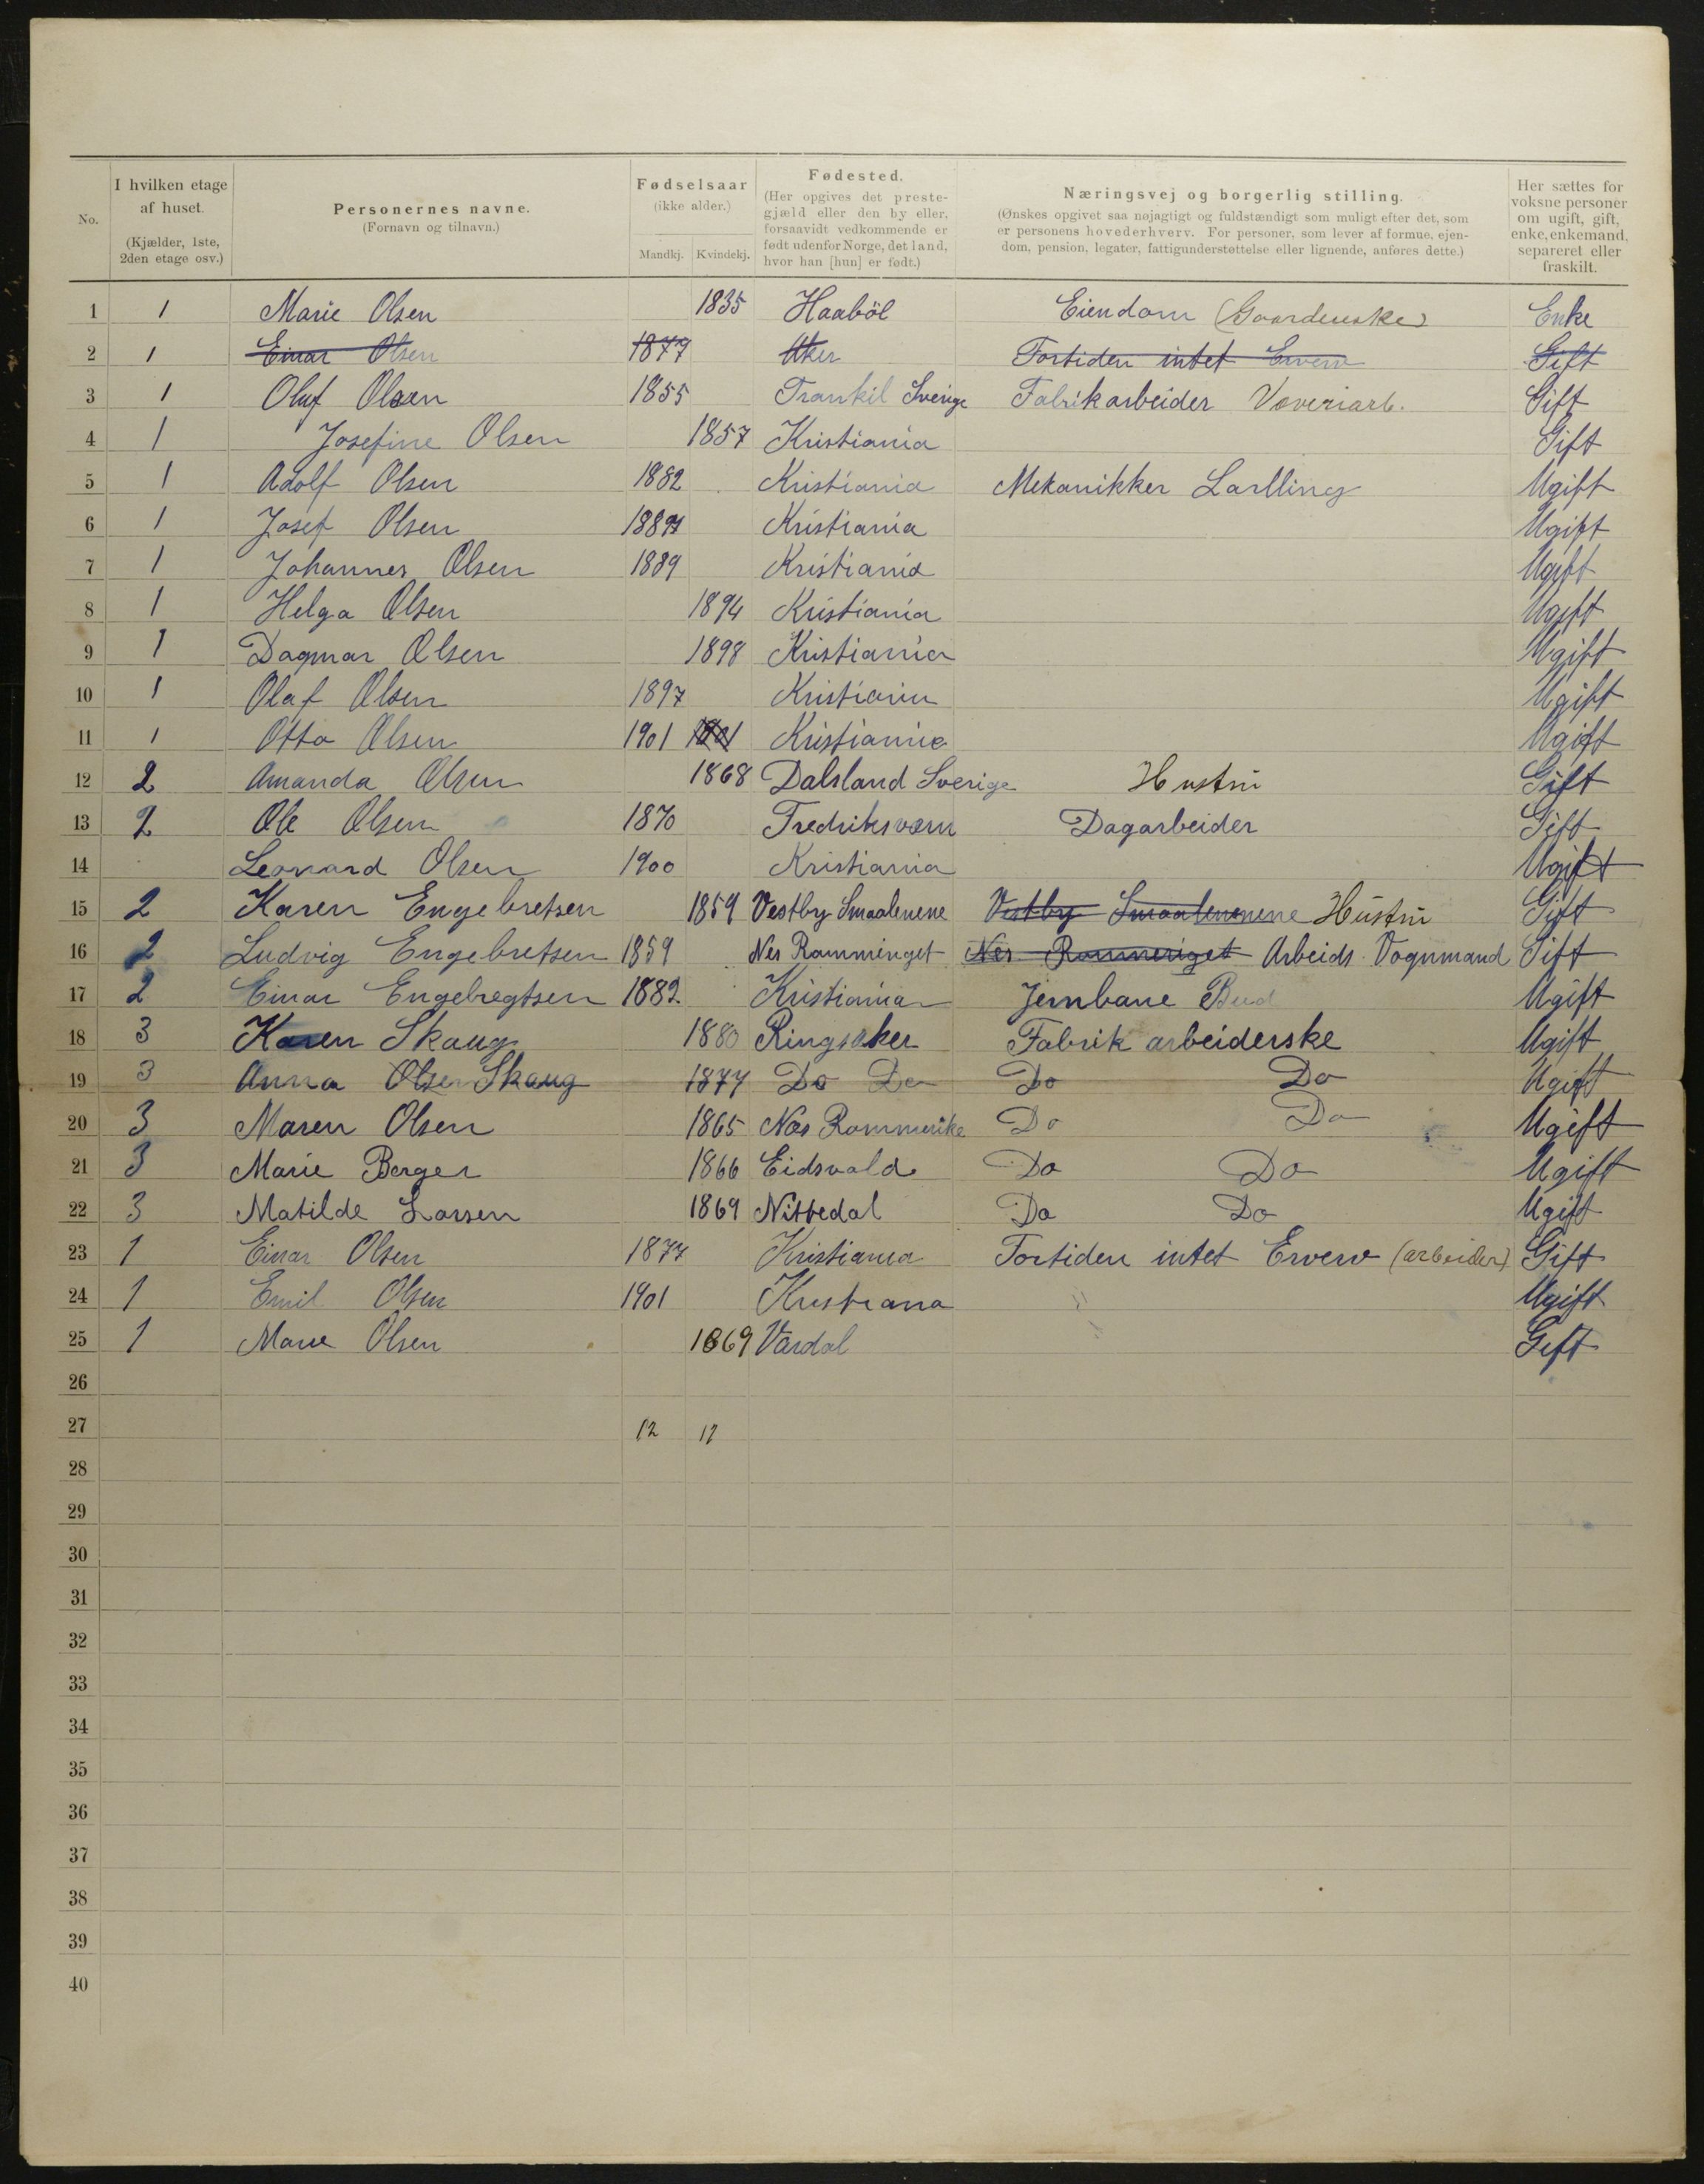 No.
I hvilken etage af huset. (Kjælder, 1ste, 2den etage osv.)
Personernes navne. (Fornavn og tilnavn.)
Fødselsaar (ikke alder.) Mandkj. Kvindekj.
Fødested. (Her opgives det prestegjæld eller den by eller, forsaavidt vedkommende er født udenfor Norge, det land, hvor han [hun] er født.)
Næringsvej og borgerlig stilling. (Ønskes opgivet saa nøjagtigt og fuldstændigt som muligt efter det, som er personens hovederhverv. For personer, som lever af formue, ejendom, pension, legater, fattigunderstøttelse eller lignende, anføres dette.)
Her sættes for voksne personer om ugift, gift, enke, enkemand, separeret eller fraskilt.
1 1 Marie Olsen 1835 Haaböl Eiendom Enke
2 1 Einar Olsen 1877 Aker Fortiden intet Erverv Gift
3 1 Oluf Olsen 1855 Trankil Sverige Fabrikarbeider Væveriarb. Gift
4 1 Josefine Olsen 1857 Kristiania Gift
5 1 Adolf Olsen 1882 Kristiania Mekanikker Larlling Ugift
6 1 Josef Olsen Kristiania Ugift
7 1 Johannes Olsen 1889 Kristiania Ugift
8 1 Helga Olsen 1894 Kristiania Ugift
9 1 Dagmar Olsen 1898 Kristiania Ugift
10 1 Olaf Olsen 1897 Kristiania Ugift
11 1 Otto Olsen 1901 1901 Kristiania Ugift
12 2 Amanda Olsen 1868 Dalsland Sverige Hustru Gift
13 2 Ole Olsen 1870 Fredriksværn Dagarbeider Gift
14 Leonard Olsen 1900 Kristiania Ugift
15 2 Karen Engebretsen 1859 Vestby Smaalenene Vestby Smaalenenene Hustru Gift
16 2 Ludvig Engebretsen 1859 Nes Rommeriget Nes Rommeriget Arbeids Vognmand Gift
17 2 Einar Engebregtsen 1882 Kristiania Jernbane Bud Ugift
18 3 Karen Skaug 1880 Ringsaker Fabrik arbeiderske Ugift
19 3 Anna Olsen Skaug 1877 Do Do Do Do Ugift
20 3 Maren Olsen 1865 Næs Rommerike Do Do Ugift
21 3 Marie Berger 1866 Eidsvold Do Do Ugift
22 3 Matilde Larsen 1869 Nittedal Do Do Ugift
23 1 Einar Olsen 1877 Kristiania Fortiden intet Erverv (arbeider) Gift
24 1 Emil Olsen 1901 Kristiania " Ugift
25 1 Marie Olsen 1869 Vardal Gift
26
27 12 12
28
29
30
31
32
33
34
35
36
37
38
39
40